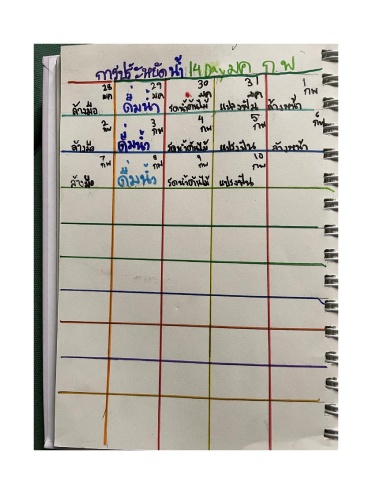 การประหยัดน้ำ 14 Day มค ก.พ
28 มค 29 มค 30 มค 31 มค 1 กพ
ล้างมือ ดื่มน้ำ รดน้ำต้นไม้ แปรงฟัน ล้างหน้า
2 กพ 3 กพ 4 กพ 5 กพ 6 กพ
ล้างมือ ดื่มน้ำ รดน้ำต้นไม้ แปรงฟัน ล้างหน้า
7 กพ 8 กพ 9 กพ 10 กพ
ล้างมือ ดื่มน้ำ รดน้ำต้นไม้ แปรงฟัน